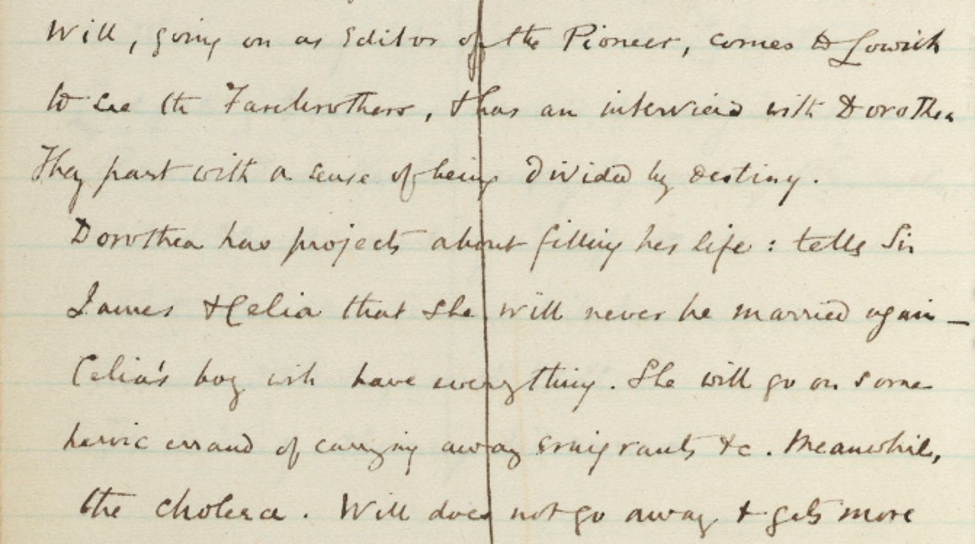 Will, going on as Editor of the Pioneer, comes to Lowick
to see the Farebrothers, & has an interview with Dorothea
They part with a sense of being divided by destiny.
Dorothea has projects about filling her life: tells Sir
James & Celia that she will never be married again —
Celia's boy will have everything. She will go on some
heroic errand of carrying away emigrants &c. Meanwhile,
the cholera. Will does not go away & gets more